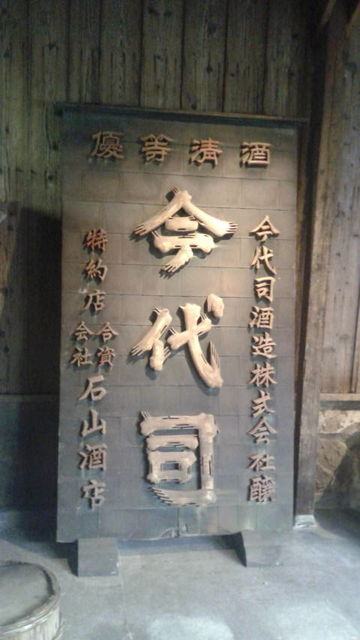 優等清酒
今代司酒造株式会社醸
今代司
特約店
合資
会社
石山酒店